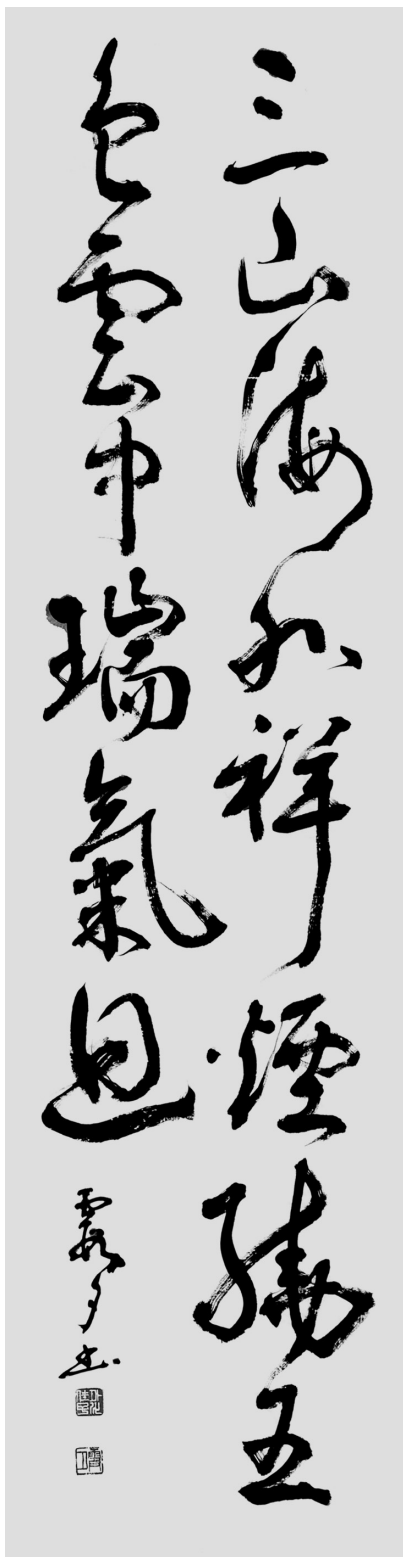 三山海外祥煙繞五
色雲中瑞氣迴
霞書